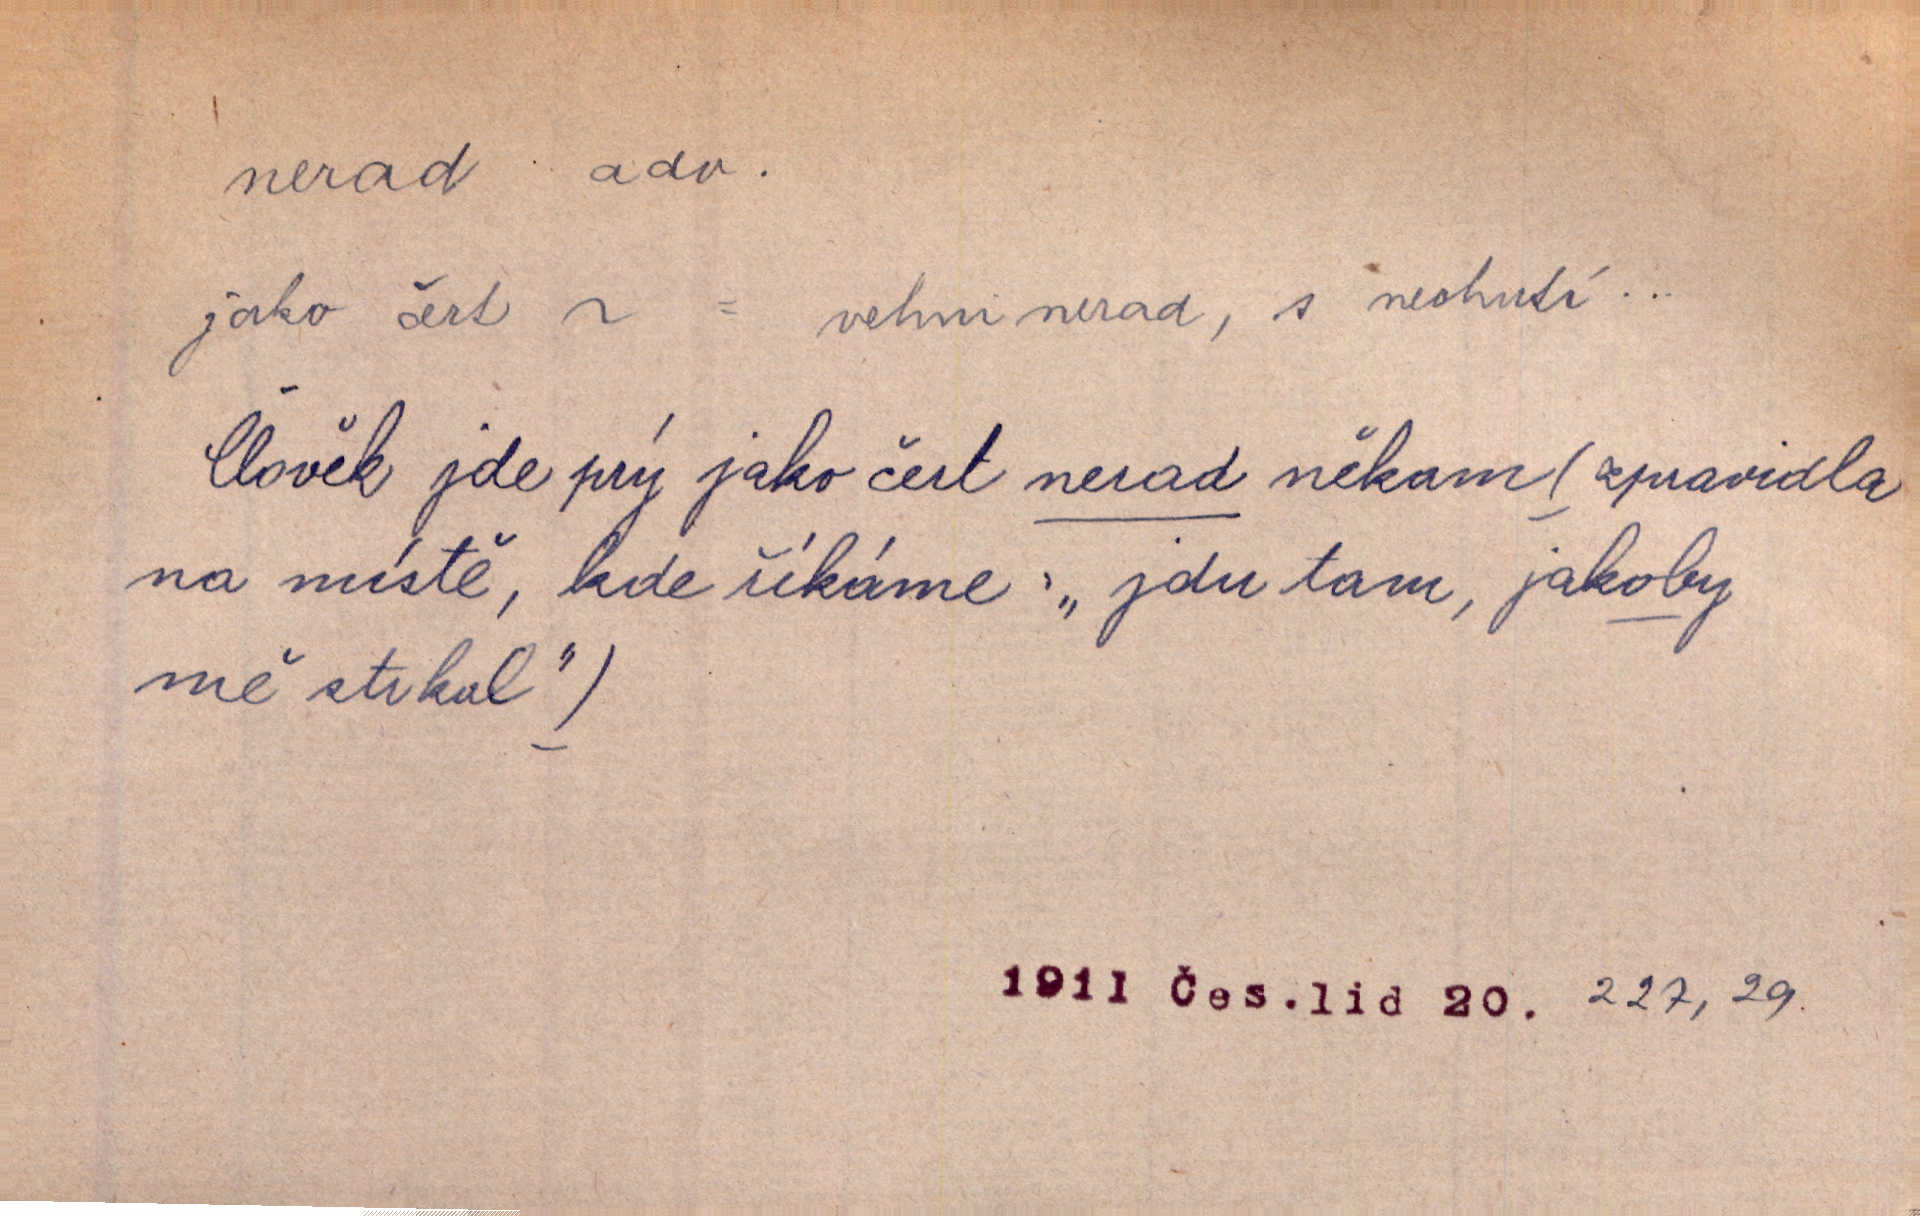 nerad adv.
jako čert ~ = velmi nerad, s nechutí...
Člověk jde prý jako čert nerad někam (zpravidla
na místě, kde říkáme: „jdu tam, jakoby
mě strkal")
1911 Čes.lid 20. 227, 29.